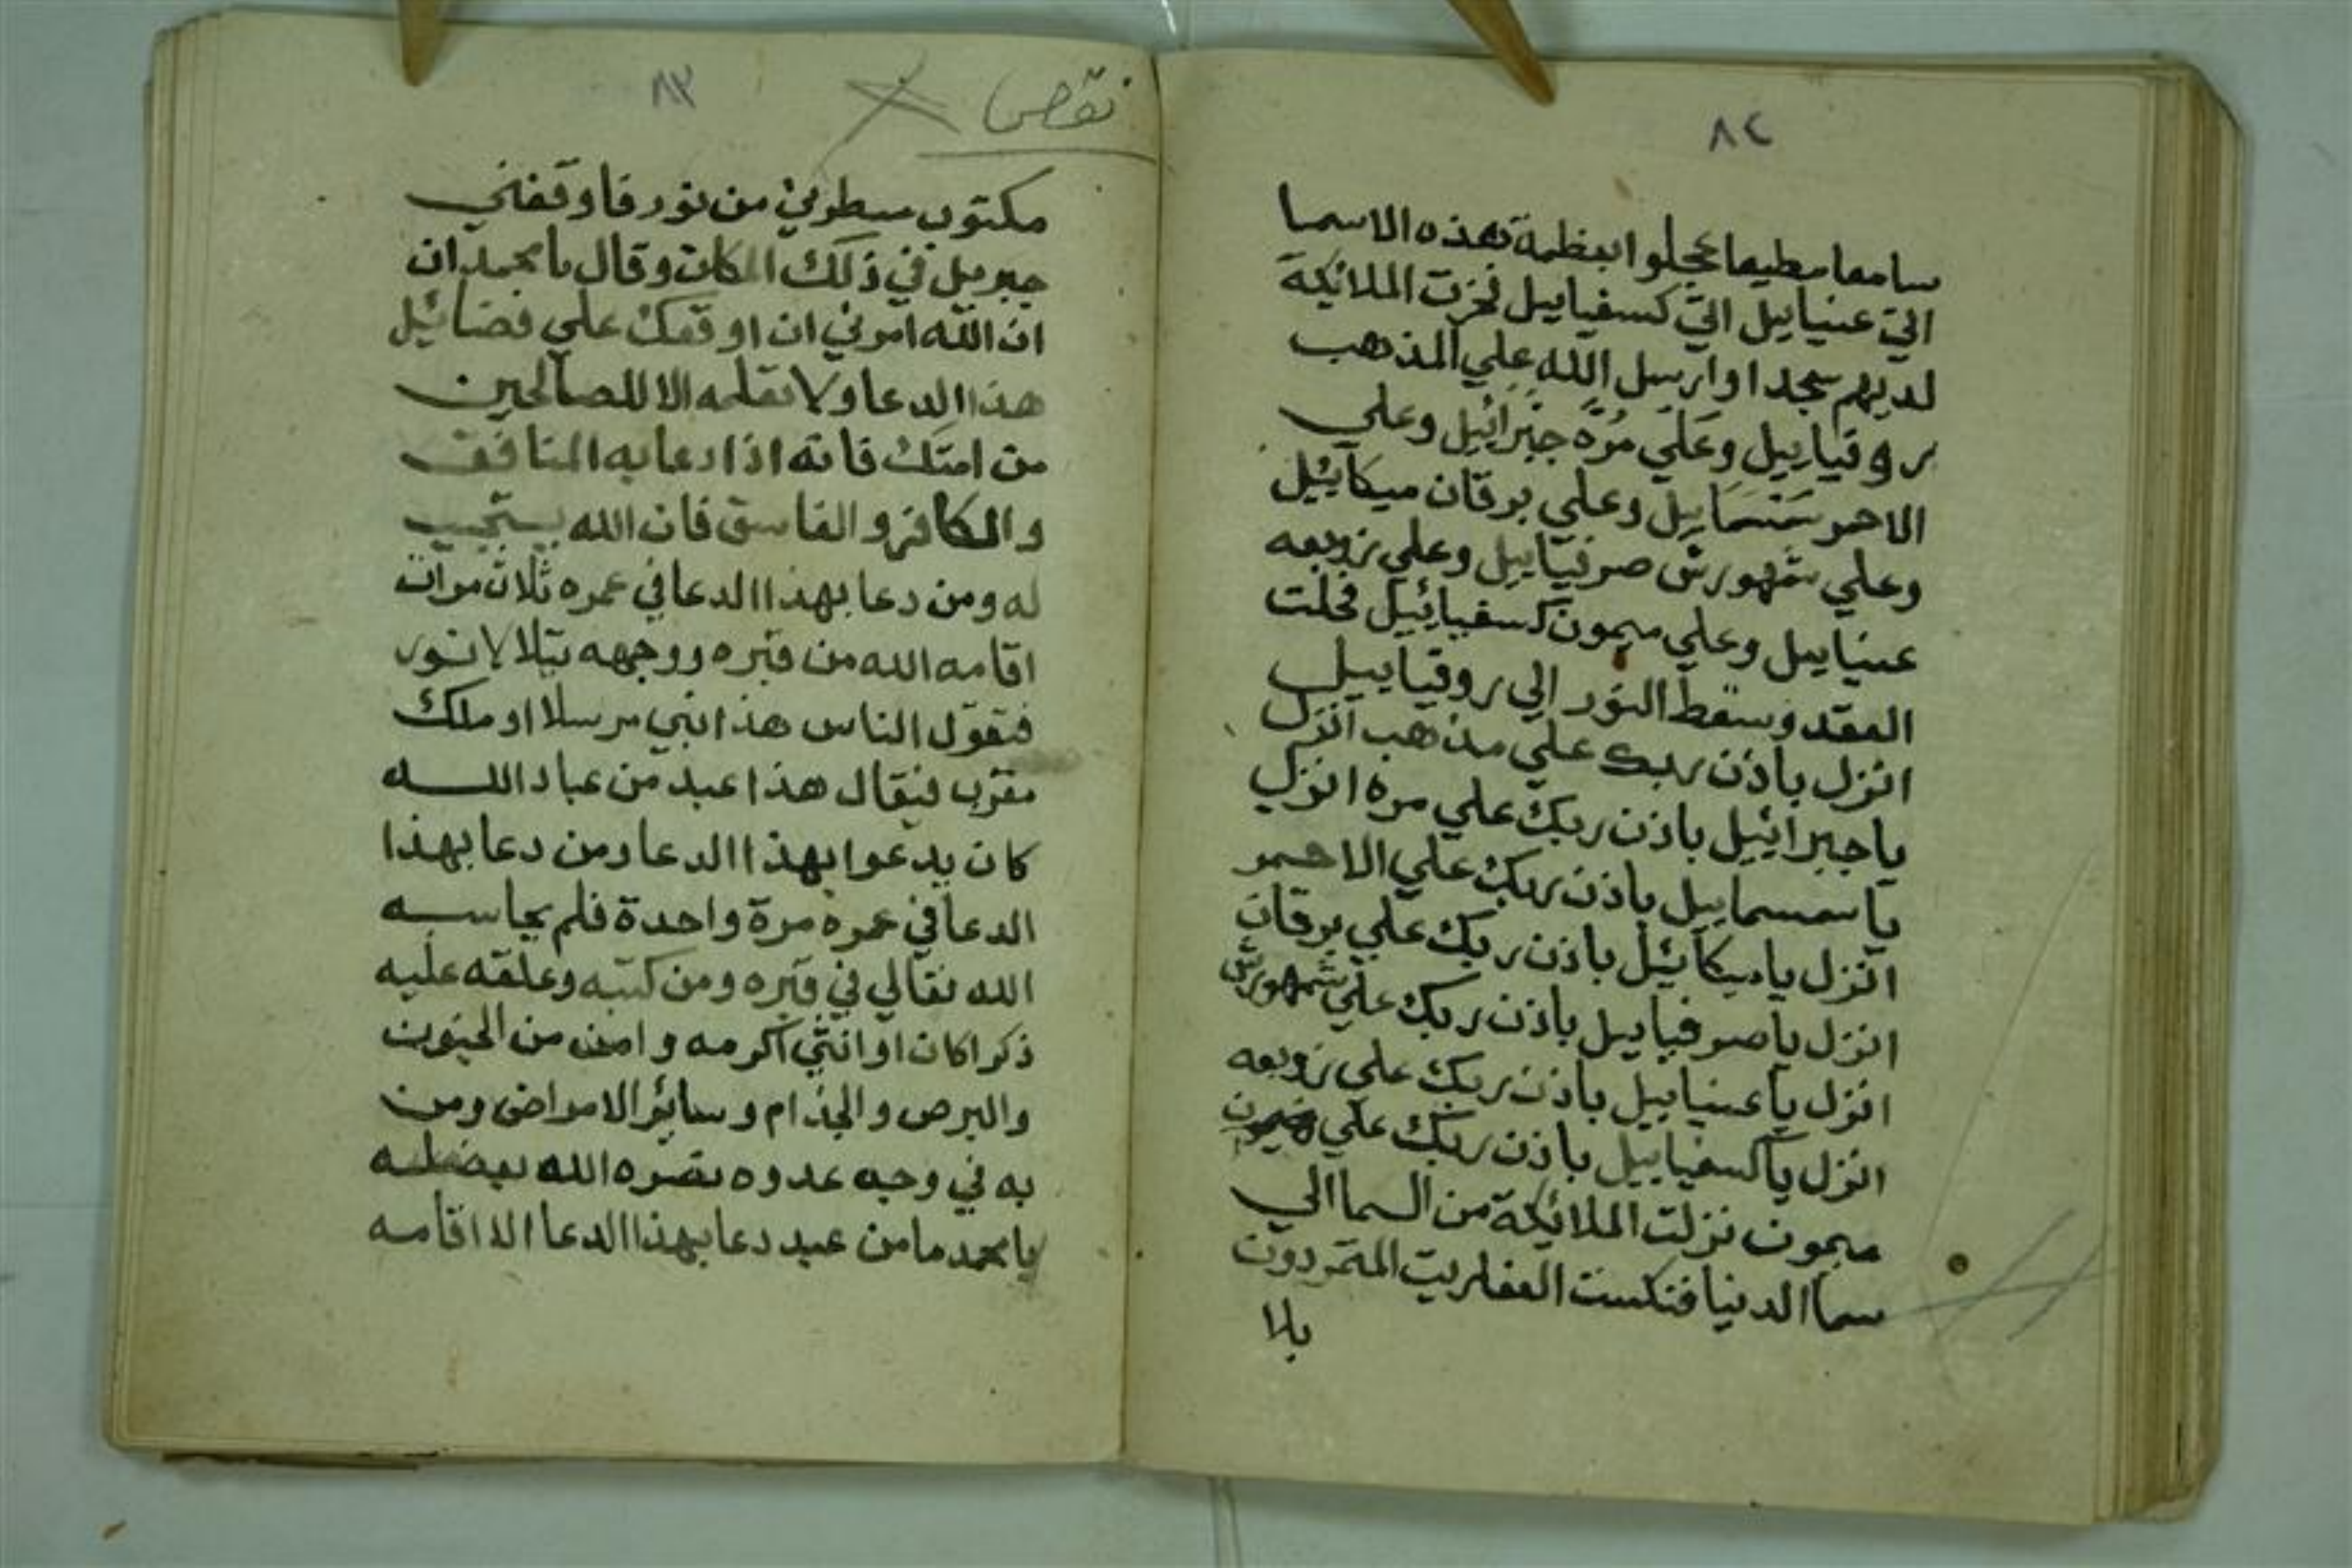 ٨٢
سامعا مطيعا عجلوا بعظمة هذه الاسما
التي عنياييل التي كسفياييل فخرت الملائكة
لديهم سجدا وارسل الله علي المذهب
روقياييل وعلي مرة جبرائيل وعلي
الاحمر سمسماييل وعلي برقان ميكائيل
وعلي شمهورش صرفياييل وعلي زوبعه
عنياييل وعلي ميمون كسفيائيل فحلت
العقد وسقط النور الي روقياييل
انزل باذن ربك علي مذهب انزل
يا جبرائيل باذن ربك علي مره انزل
يا سمسماييل باذن ربك علي الاحمر
انزل يا ميكائيل باذن ربك علي برقان
انزل يا صرفياييل باذن ربك علي شمهورش
انزل يا عنياييل باذن ربك علي زوبعه
انزل يا كسفياييل باذن ربك علي
ميمون نزلت الملائكة من السما الي
سما الدنيا فنكست العفاريت المتمردون
بلا
٨٣
نقص
مكتوب سطوني من نور فاوقفني
جبريل في ذلك المكان وقال يا محمد ان
ان الله امرني ان اوقفك علي فضائيل
هذا الدعا ولا تعلمه الا للصالحين
من امتك فانه اذا دعا به المنافق
والكافر والفاسق فان الله يستجيب
له ومن دعا بهذا الدعا في عمره ثلاث مرات
اقامه الله من قبره ووجهه يتلالا نور
فتقول الناس هذا نبي مرسلا او ملك
مقرب فيقال هذا عبد من عباد الله
كان يدعوا بهذا الدعا ومن دعا بهذا
الدعا في عمره مرة واحدة فلم يحاسبه
الله تعالي في قبره ومن كتبه وعلقه عليه
ذكرا كان او انثي اكرمه وامن من الجنون
والبرص والجذام وسائر الامراض ومن
به في وجه عدوه نصره الله بفضله
يا محمد ما من عبد دعا بهذا الدعا الا اقامه